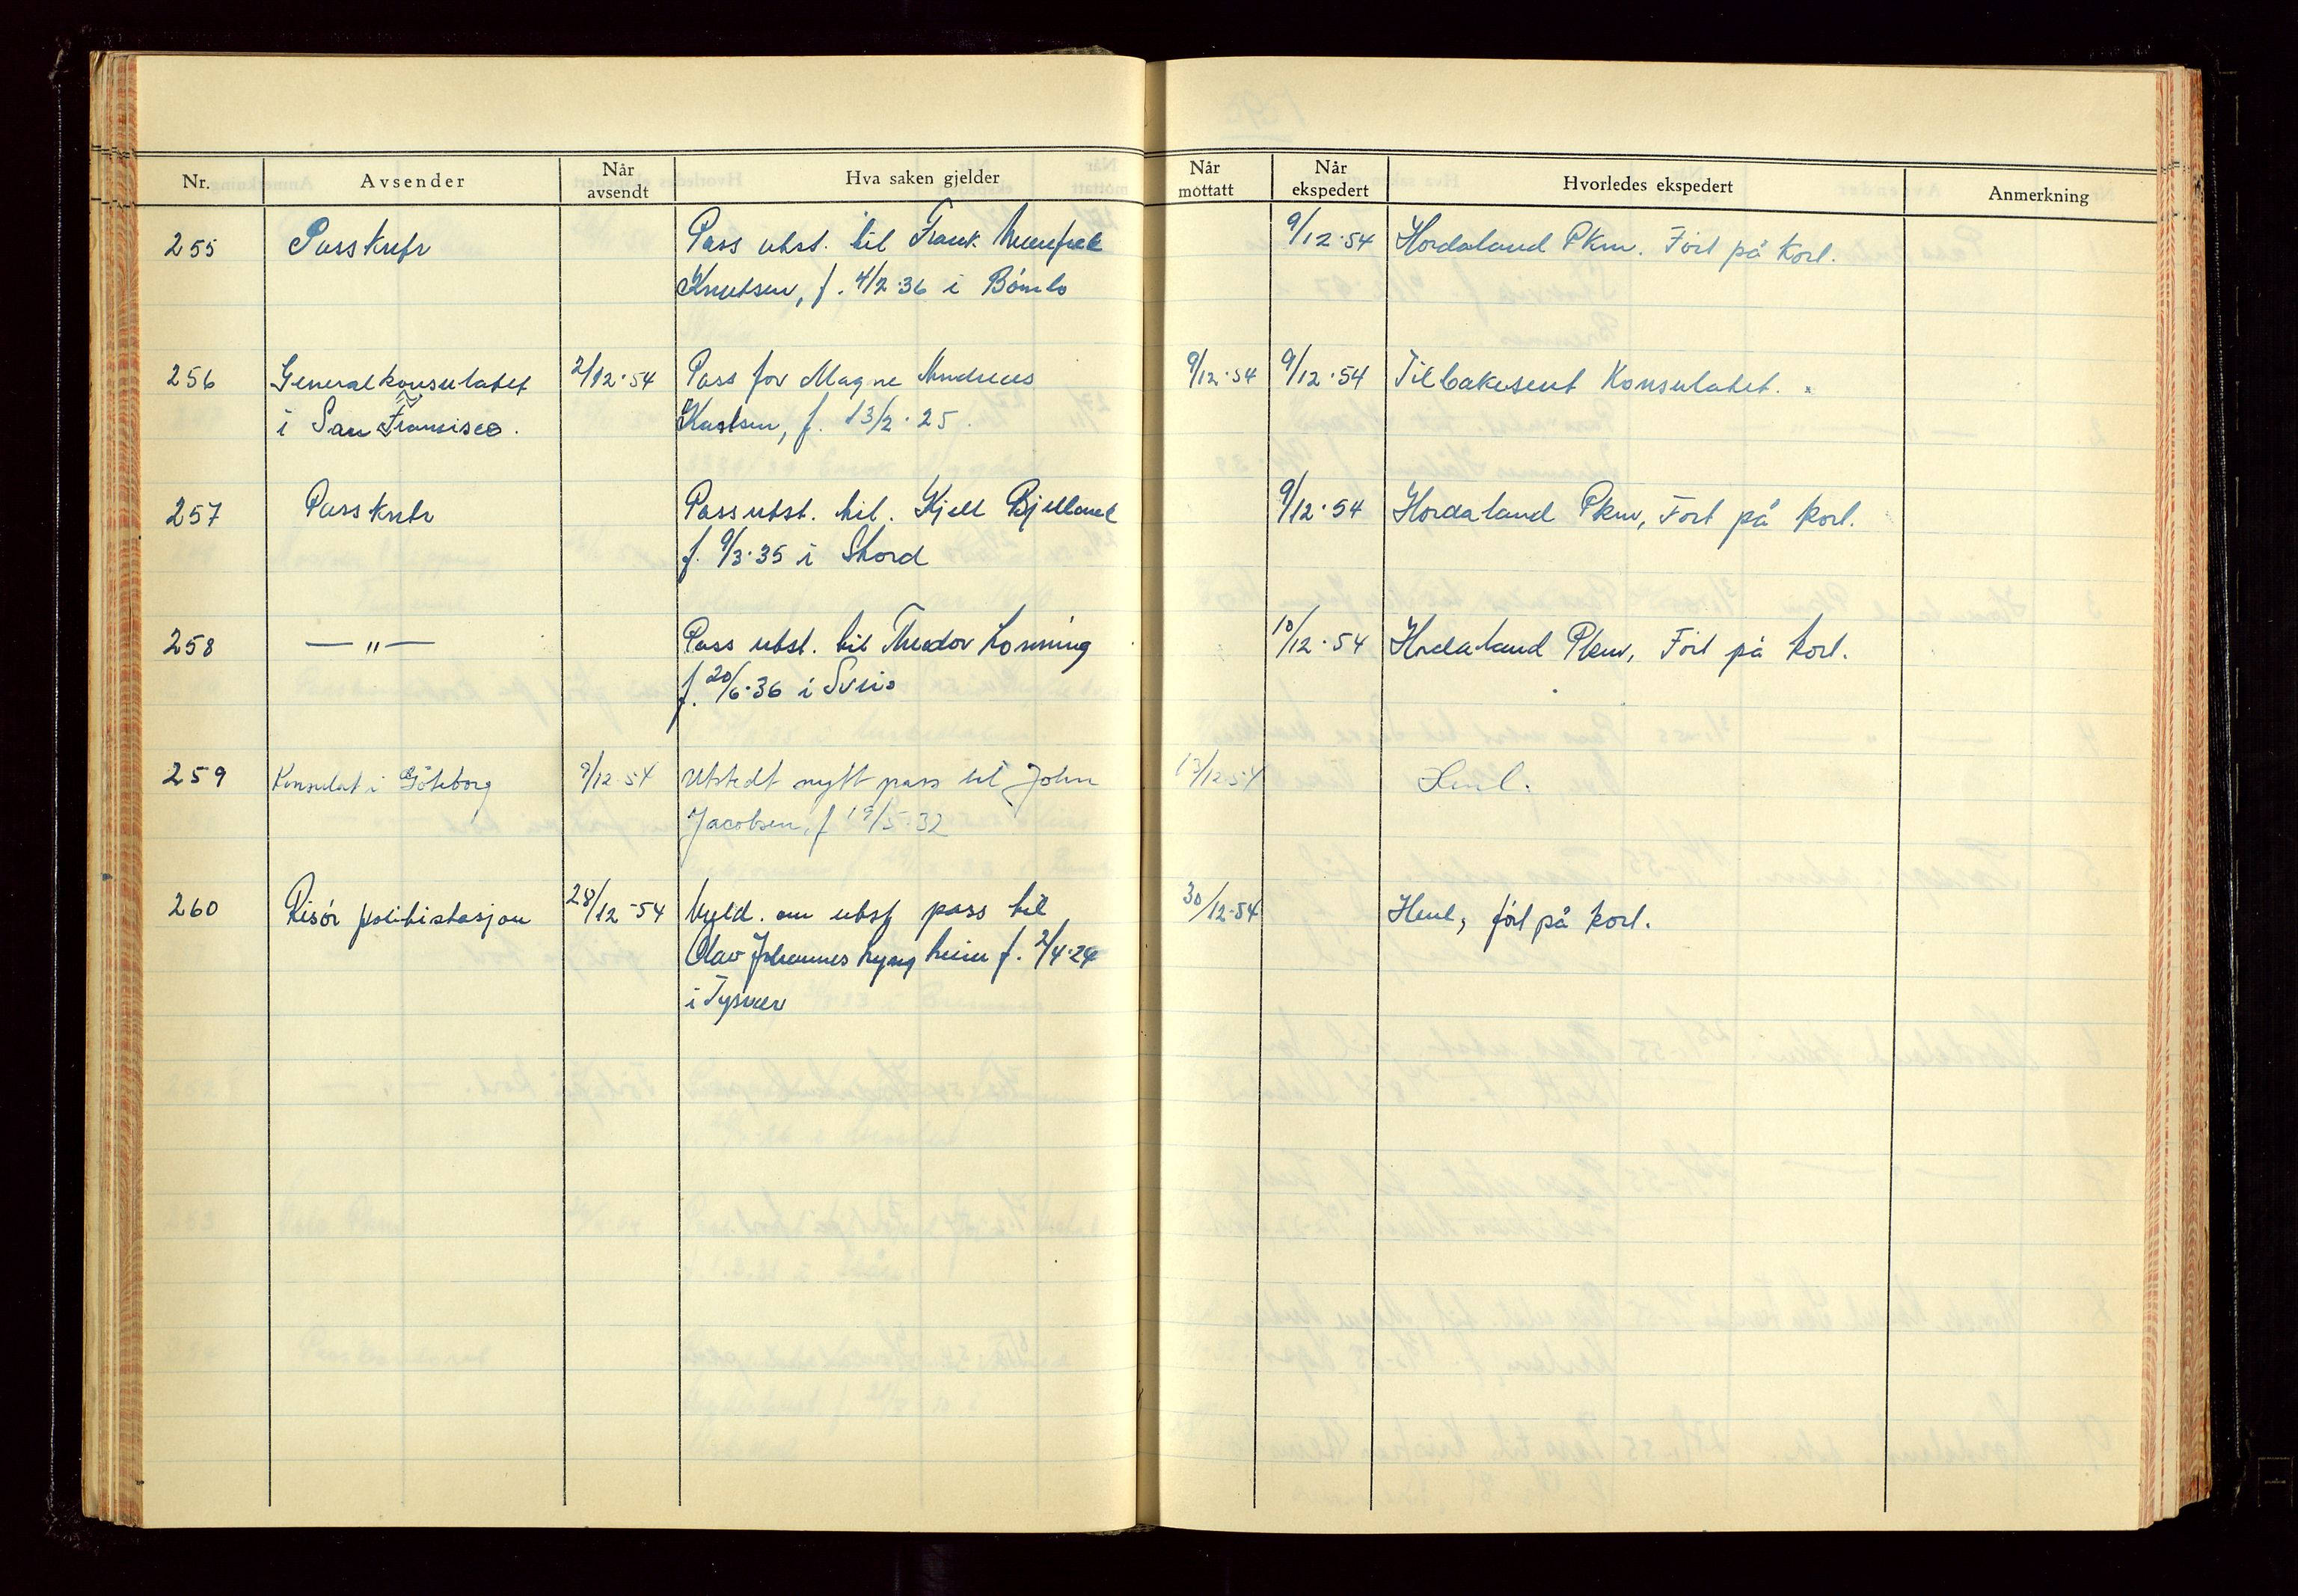 Nr. Avsender Når avsendt Hva saken gjelder Når mottatt Når ekspedert Hvorledes ekspedert Anmerkning
255 Passkntr Pass utst. til Frank 9/12-54 Hordaland Pkm. Ført på kort.
Knutsen, f. 4/2-36 i Bømlo
256 Generalkonsulatet 2/12-54 Pass for Magne Andreas 9/12-54 9/12-54 Tilbakesent Konsulatet.
i San Fransisco. f. 13/2-25.
257 Passkntr Pass utst. til. Kjell Bjelland 9/12-54 Hordaland Pkm, Ført på kort.
f. 9/3-35 i Stord
258 — " — Pass utst. til Theodor Lønning 10/12-54 Hordaland Pkm, Ført på kort.
f. 20/6-36 i Sveio
259 Konsulat i Göteborg 9/12-54 Utstedt nytt pass til John 13/12-54 Henl.
Jacobsen, f 19/5-32
260 Risør politistasjon 28/12-54 Meld. om utst pass til 30/12-54 Henl, ført på kort.
Olav Johannes f. 2/4-24
i Tysvær